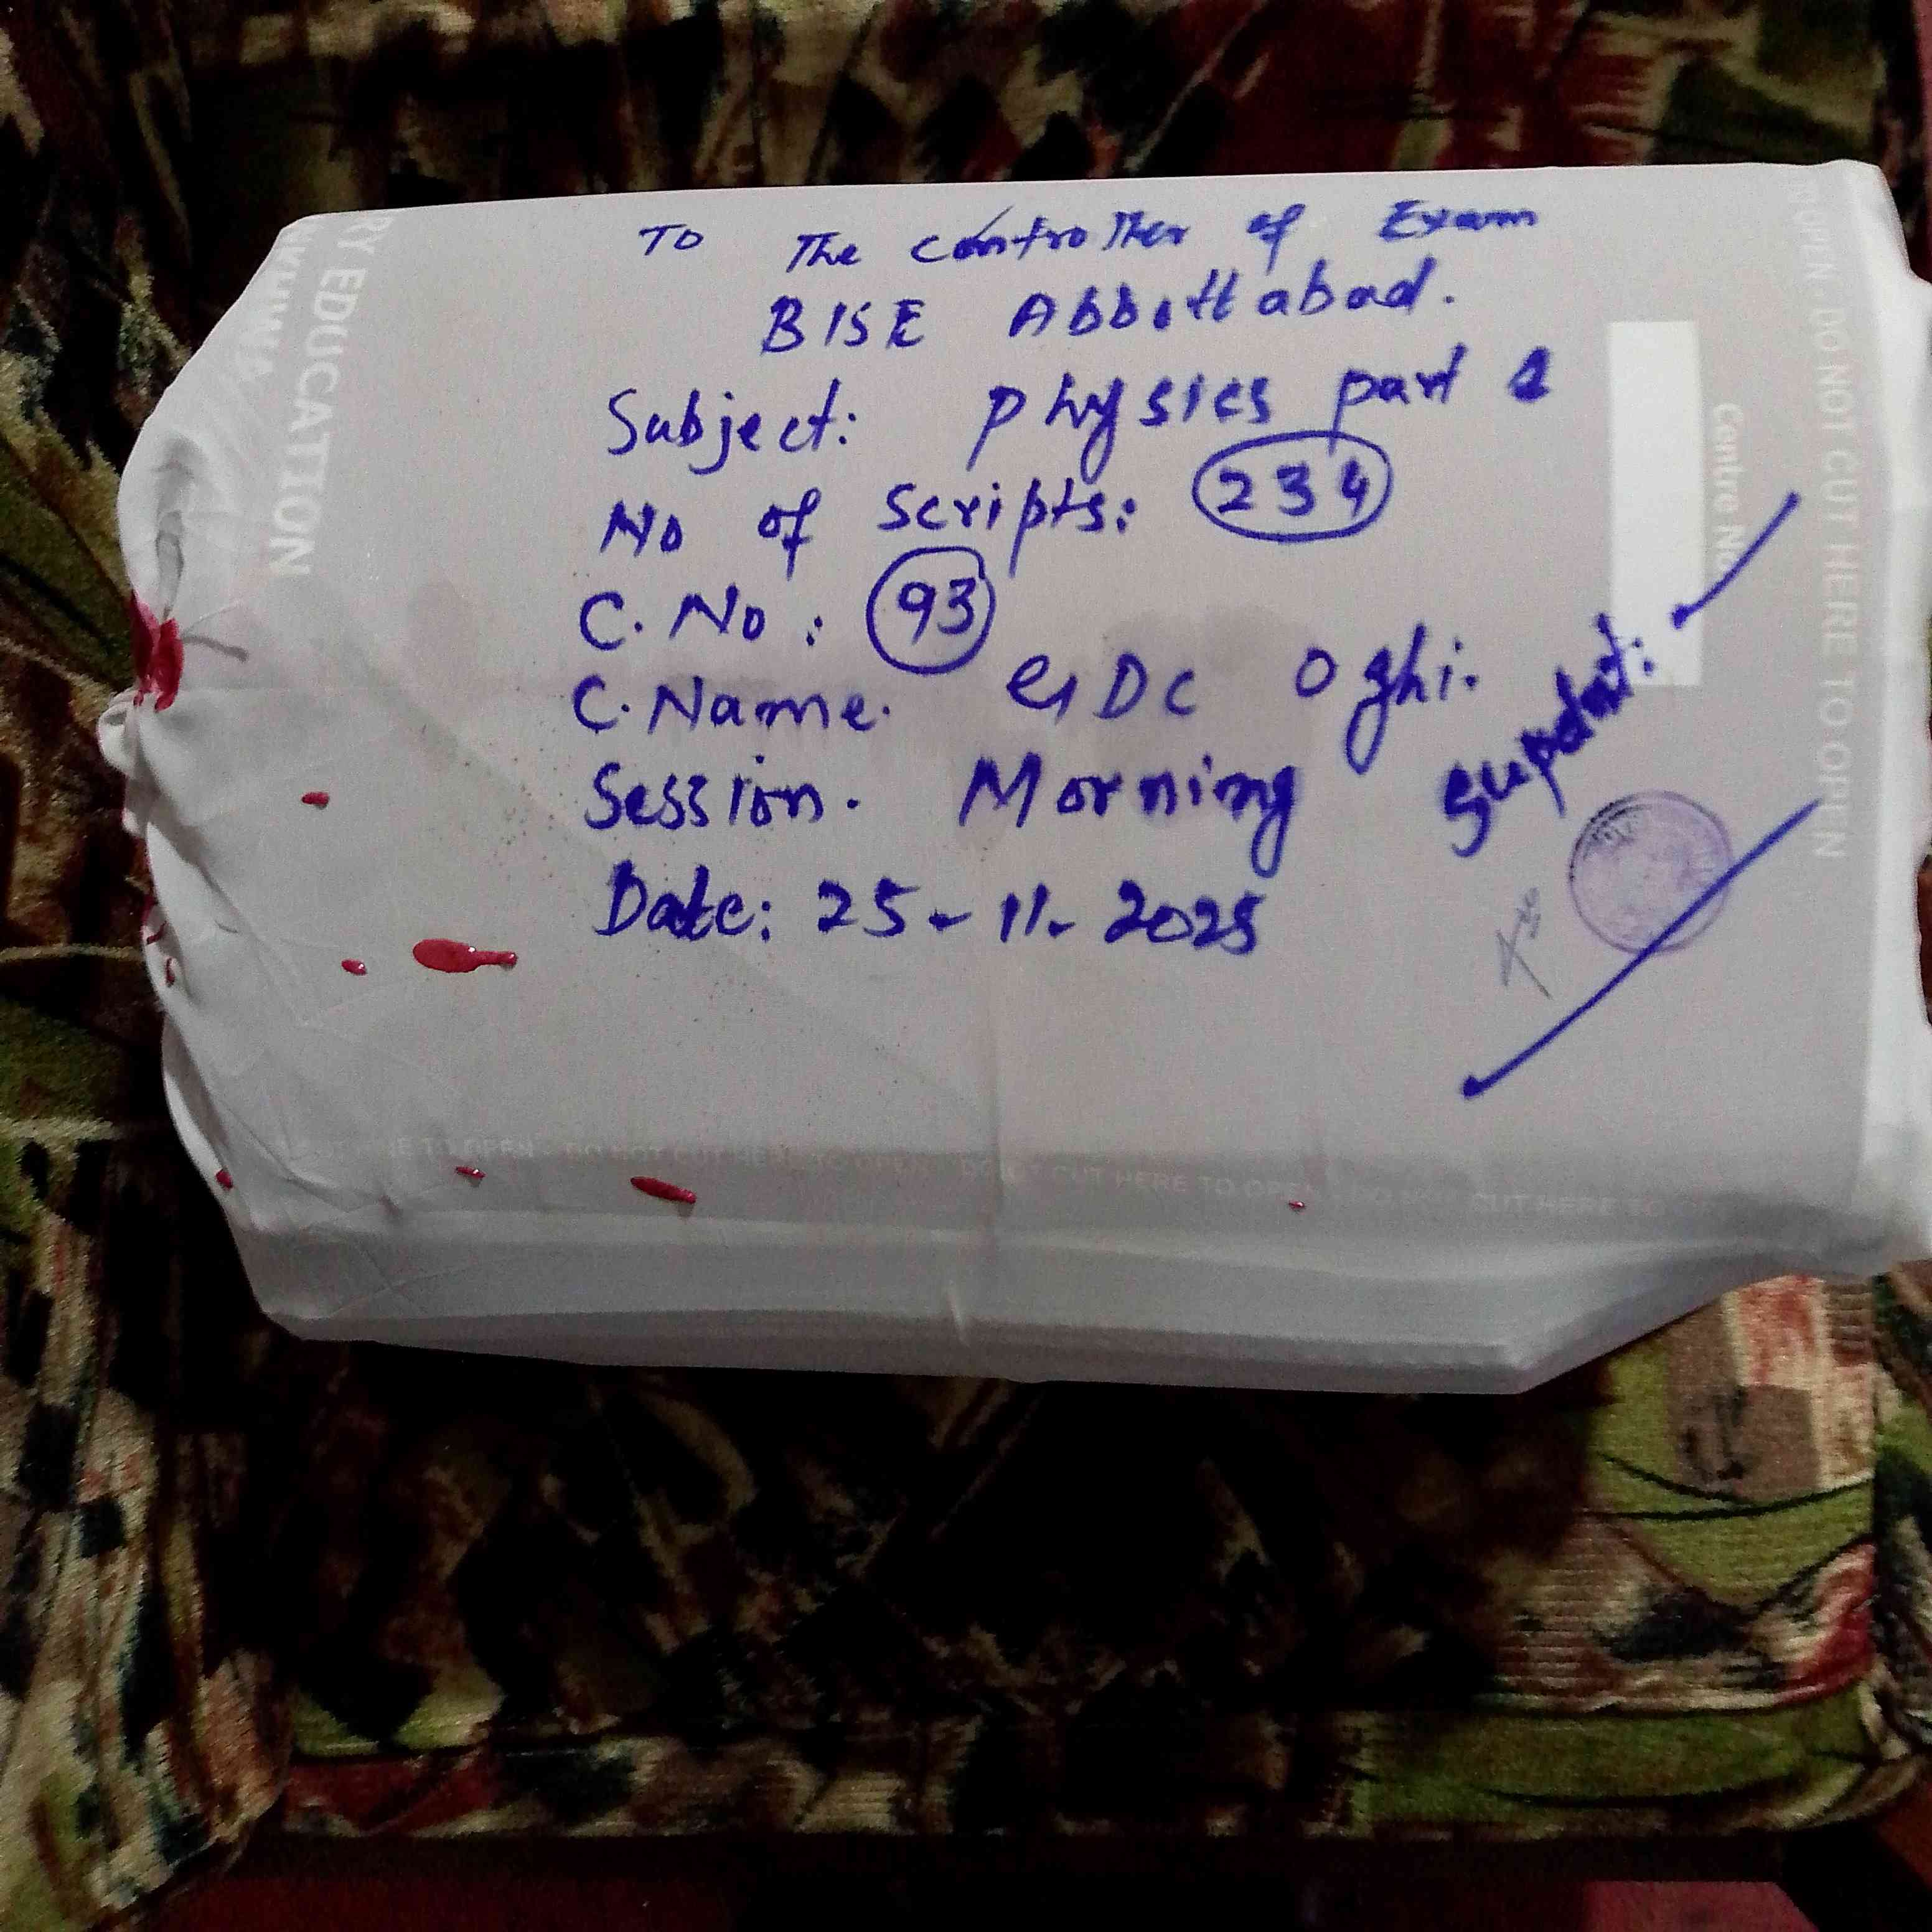 To The Controller of Exam
BISE Abbottabad.
Subject: Physics part
No of Scripts: 234
C. No: 93
C. Name. GDC Oghi.
Session. Morning
Date: 25-11-2025
Supdnt:
RY EDUCATION
Centre No
DO NOT CUT HERE TO OPEN
DO NOT CUT HERE TO OPEN
CUT HERE TO OPEN
CUT HERE TO